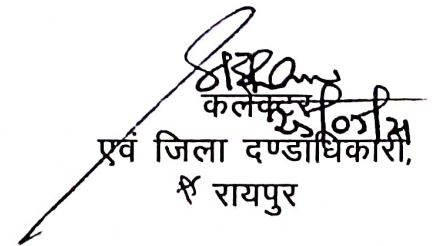 कलेक्टर
एवं जिला दण्डाधिकारी,
रायपुर